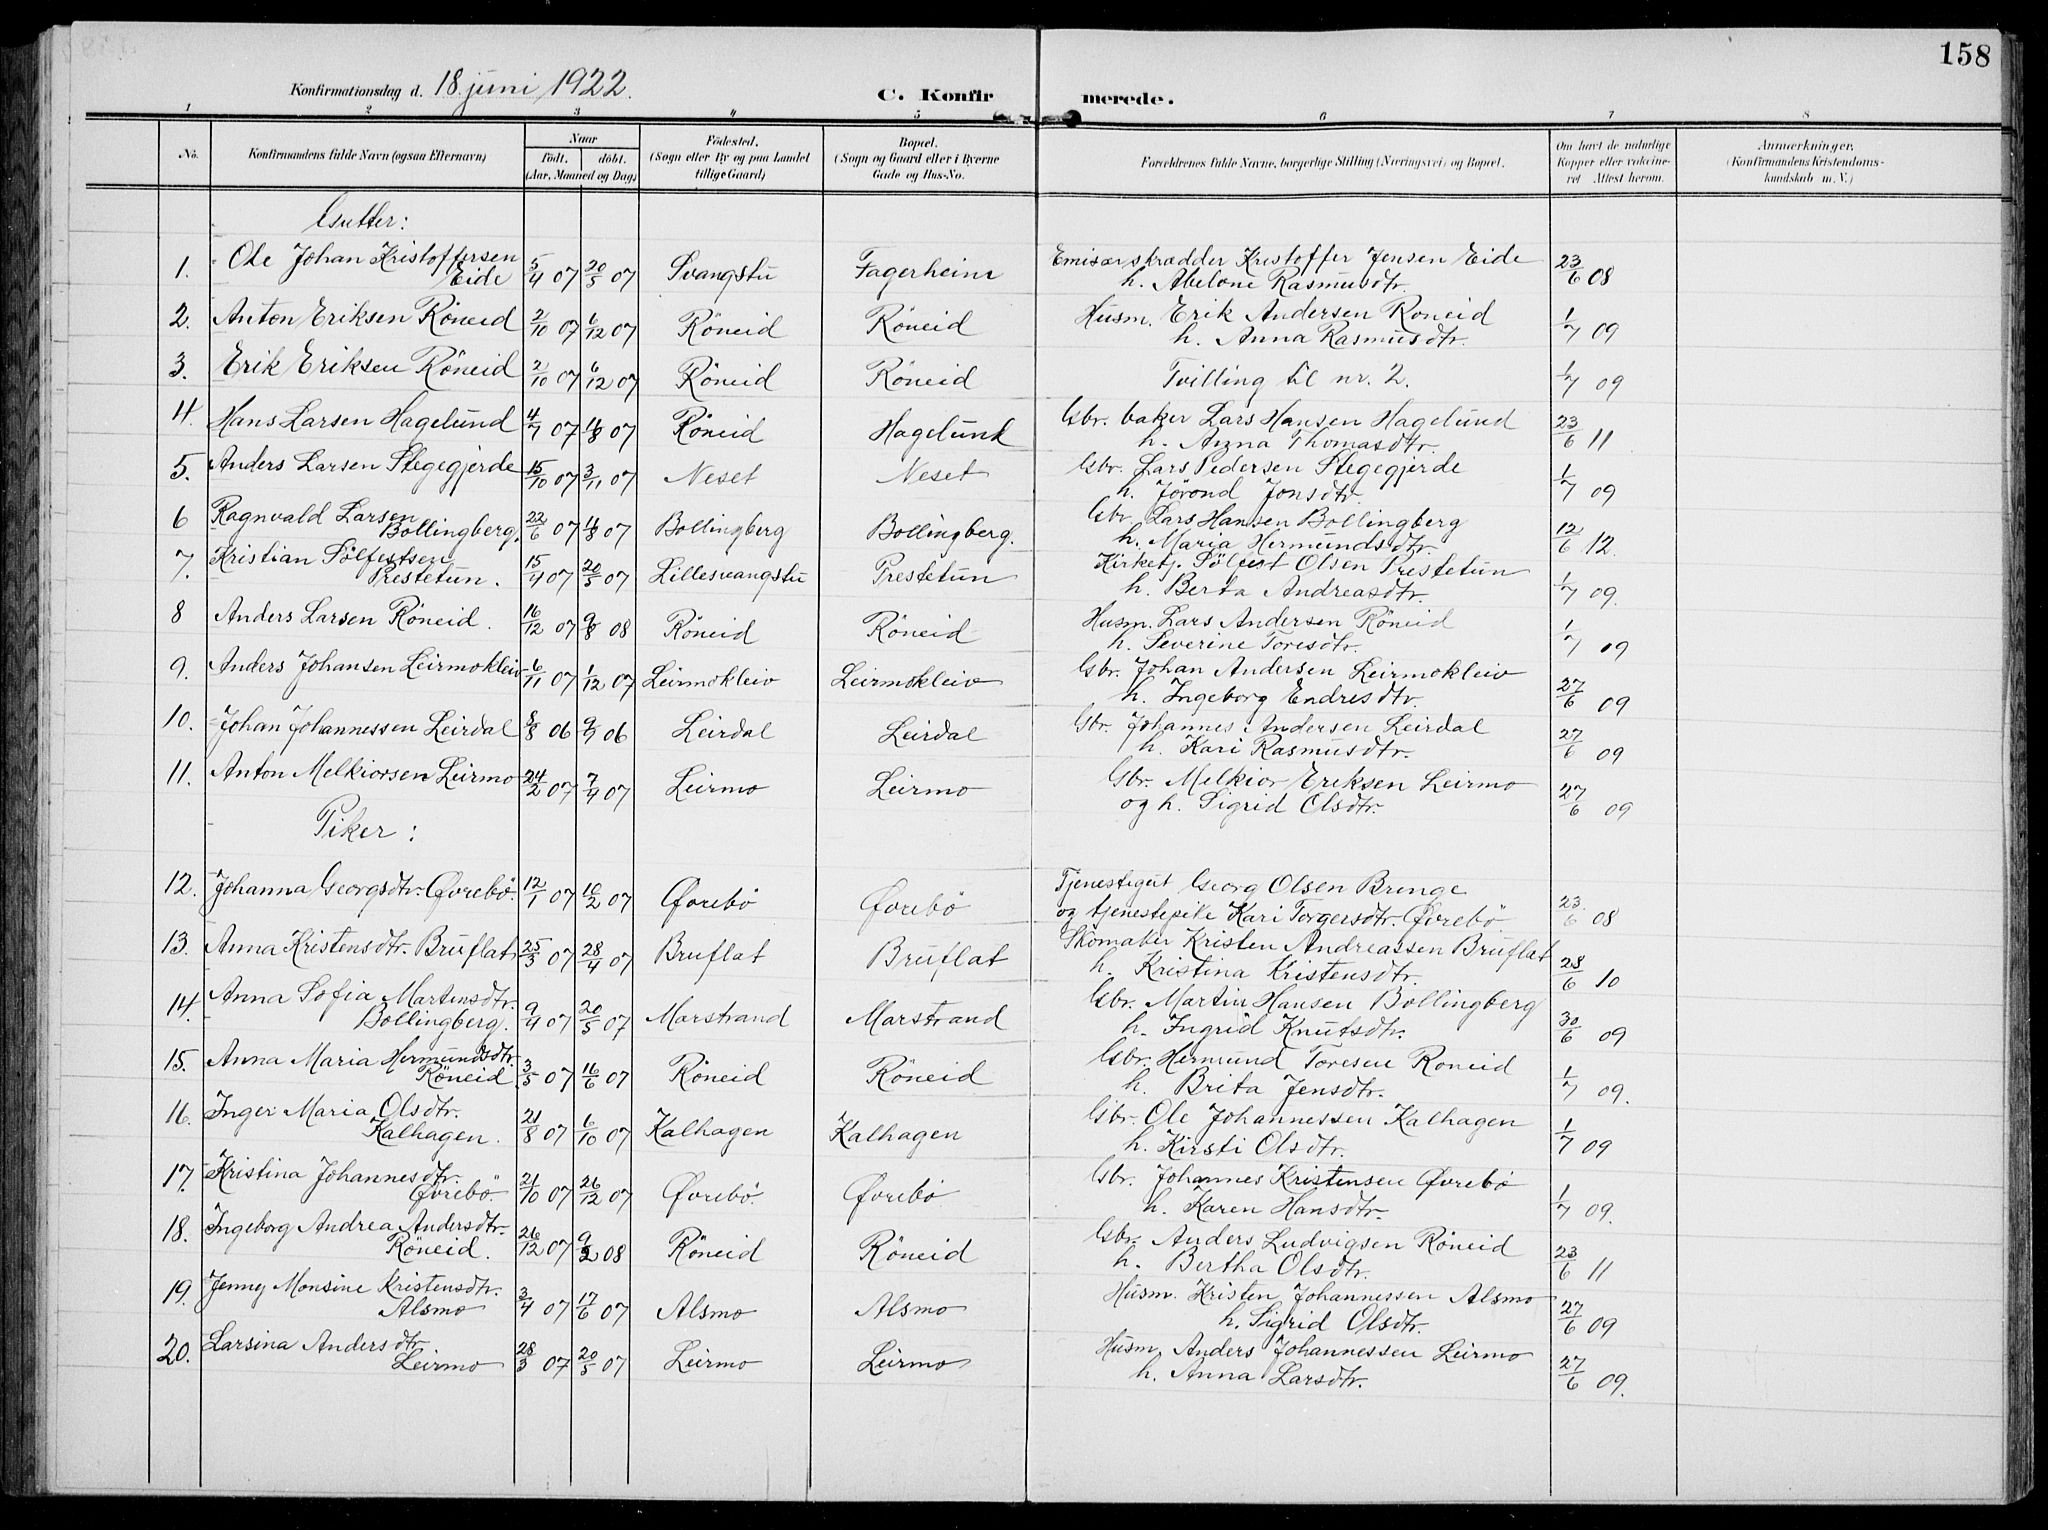 158
Konfirmationsdag d. 18. juni 1922.
C. Konfirmerede.
1 2 3 4 5 6 7 8
No. Konfirmandens fulde Navn (ogsaa Efternavn) Naar født. døbt. (Aar, Maaned og Dag) Fødested. (Sogn eller By og paa Landet tillige Gaard) Bopæl. (Sogn og Gaard eller i Byerne Gade og Hus-No. Forældrenes fulde Navne, borgerlige Stilling (Næringsvei) og Bopæl. Om havt de naturlige Kopper eller vaccineret Attest herom. Anmærkninger. (Konfirmandens Kristendomskundskab m. V.)
Gutter:
1. Ole Johan Kristoffersen Eide 5/4 07 20/5 07 Svangstu Fagerheim Emisær skrædder Kristoffer Jensen Eide 23/6 08
h. Abelone Rasmusdtr.
2. Anton Eriksen Röneid 2/10 07 6/12 07 Röneid Röneid Husm. Erik Andersen Roneid 1/7 09
h. Anna Rasmusdtr.
3. Erik Eriksen Röneid 2/10 07 6/12 07 Röneid Röneid Tvilling til nr. 2. 1/7 09
4. Hans Larsen Hagelund 4/7 07 18/8 07 Röneid Hagelund Gbr. baker Lars Hansen Hagelund 23/6 11
h. Anna Thomasdtr.
5. Anders Larsen Stegegjerde 15/10 07 3/11 07 Neset Neset Gbr. Lars Pedersen Stegegjerde 1/7 09
h. Jörond Jonsdtr.
6 Ragnvald Larsen Bollingberg. 22/6 07 18/8 07 Bollingberg Bollingberg. Gbr. Lars Hansen Bollingberg 12/6 12.
h. Maria Hermundsdtr.
7. Kristian Sölfestsen Prestetun. 15/4 07 20/5 07 Lillesvangstu Prestetun Kirketj. Sölfest Olsen Prestetun 1/7 09.
h. Berta Andreasdtr.
8 Anders Larsen Röneid. 16/12 07 9/8 08 Röneid Röneid Husm. Lars Andersen Röneid 1/7 09
h. Severine Toresdtr.
9. Anders Johansen Leirmokleiv 6/11 07 1/12 07 Leirmokleiv Leirmokleiv Gbr. Johan Andersen Leirmokleiv 27/6 09
h. Ingeborg Endresdtr.
10. Johan Johannessen Leirdal 8/8 06 9/9 06 Leirdal Leirdal Gbr. Johannes Andersen Leirdal 27/6 09
h. Kari Rasmusdtr.
11. Anton Melkiorsen Leirmo 24/2 07 7/4 07 Leirmo Leirmo Gbr. Melkior Eriksen Leirmo 27/6 09
og h. Sigrid Olsdtr.
Piker:
12. Johanna Georgsdtr. Øvrebö. 12/1 07 10/2 07 Øvrebö Øvrebö Tjenestegut Georg Olsen Brenge 23/6 08
og tjenestepike Kari Torgersdtr. Øvrebö
13. Anna Kristensdtr. Bruflat 25/3 07 28/4 07 Bruflat Bruflat Skomaker Kristen Andreassen Bruflat 28/6 10
h. Kristina Kristensdtr.
14. Anna Sofia Martinsdtr. Bollingberg. 9/4 07 20/5 07 Marstrand Marstrand Gbr. Martin Hansen Bollingberg 30/6 09
h. Ingrid Knutsdtr.
15. Anna Maria Hermundsdtr. Röneid. 3/5 07 16/6 07 Röneid Röneid Gbr. Hermund Toresen Roneid 1/7 09.
h. Brita Jensdtr.
16. Inger Maria Olsdtr. Kalhagen. 21/8 07 6/10 07 Kalhagen Kalhagen Gbr. Ole Johannessen Kalhagen 1/7 09
h. Kirsti Olsdtr.
17. Kristina Johannesdtr. Øvrebö. 21/10 07 26/12 07 Øvrebö. Øvrebö Gbr. Johannes Kristensen Øvrebö 1/7 09.
h. Karen Hansdtr.
18. Ingeborg Andrea Andersdtr. Röneid. 26/12 07 9/2 08 Röneid Röneid Gbr. Anders Ludvigsen Röneid 23/6 11
h. Bertha Olsdtr.
19. Jenny Monsine Kristensdtr. Alsmo 3/4 07 17/6 07 Alsmo Alsmo Husm. Kristen Johannessen Alsmo 27/6 09
h. Sigrid Olsdtr.
20. Larsina Andersdtr. Leirmo 28/3 07 20/5 07 Leirmo Leirmo Husm. Anders Johannessen Leirmo 27/6 09.
h. Anna Larsdtr.